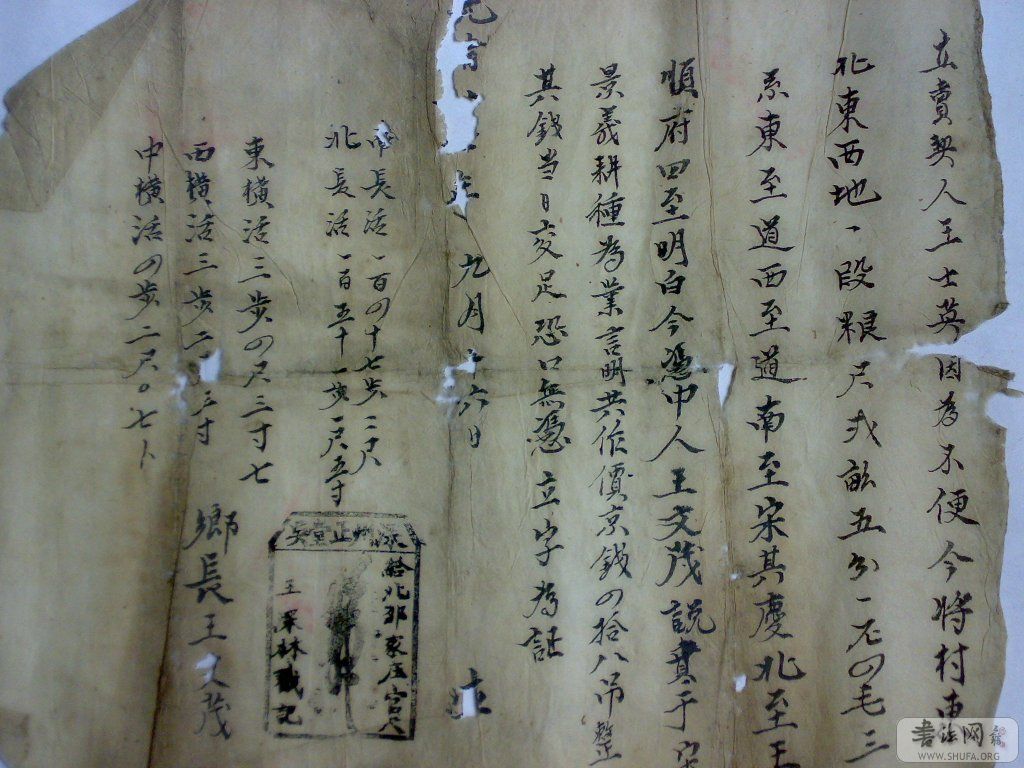 立賣契人王士英因為不便今將村東
北東西地一段粮尺弍畝五分一厘四毛三
系東至道西至道南至宋其慶北至王
順府四至明白今憑中人王文茂説賣于宋
景義耕種為業言明共作價京錢四拾八吊整
其錢当日交足恐口無憑立字為証
九月 六日 立
長活一百四十七步二尺
北長活一百五十一步一尺五寸
東橫活三步四尺三寸七
西橫活三步二 三寸
中橫活四步二尺〇七卜
鄉長王文茂
正堂
給北邢家庄官尺
王 林戳記
書法网
WWW.SHUFA.ORG